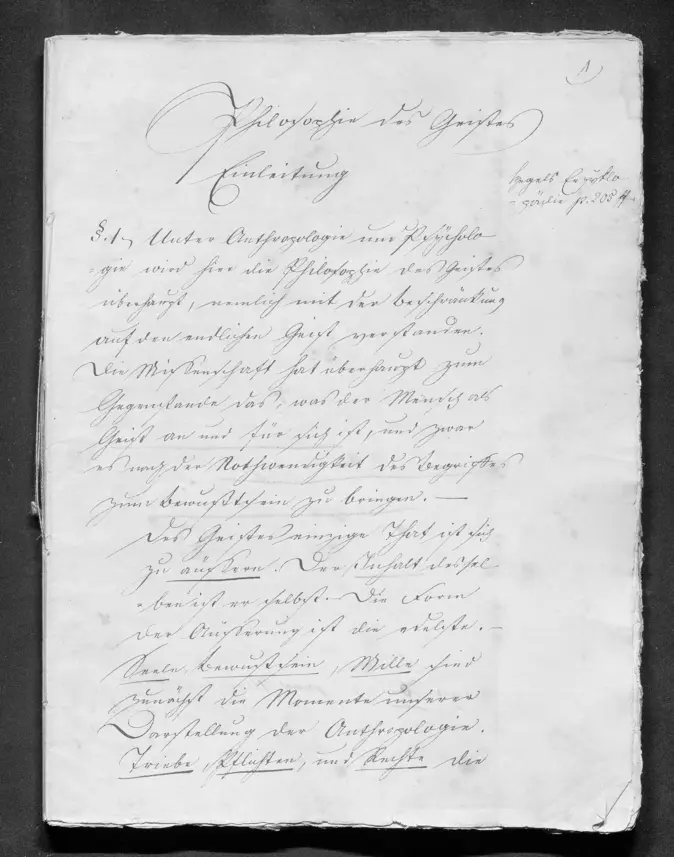 1)
Philosophie des Geistes
Einleitung
Hegels Enzyklo
-pädie p. 205 ff.
§. 1. Unter Anthropologie und Psycholo
-gie wird hier die Philosophie des Geistes
überhaupt, nemlich mit der Beschränkung
auf den endlichen Geist verstanden.
Die Wissenschaft hat überhaupt zum
Gegenstande das, was der Mensch als
Geist an und für sich ist, und zwar
es nach der Nothwendigkeit des Begriffes
zum Bewußtsein zu bringen. —
Des Geistes einzige That ist sich
zu äussern. Der Inhalt dessel
-ben ist er selbst. Die Form
der Äusserung ist die edelste. —
Seele, Bewustsein, Wille sind
zunächst die Momente unserer
Darstellung der Anthropologie.
Triebe, Pflichten, und Rechte die